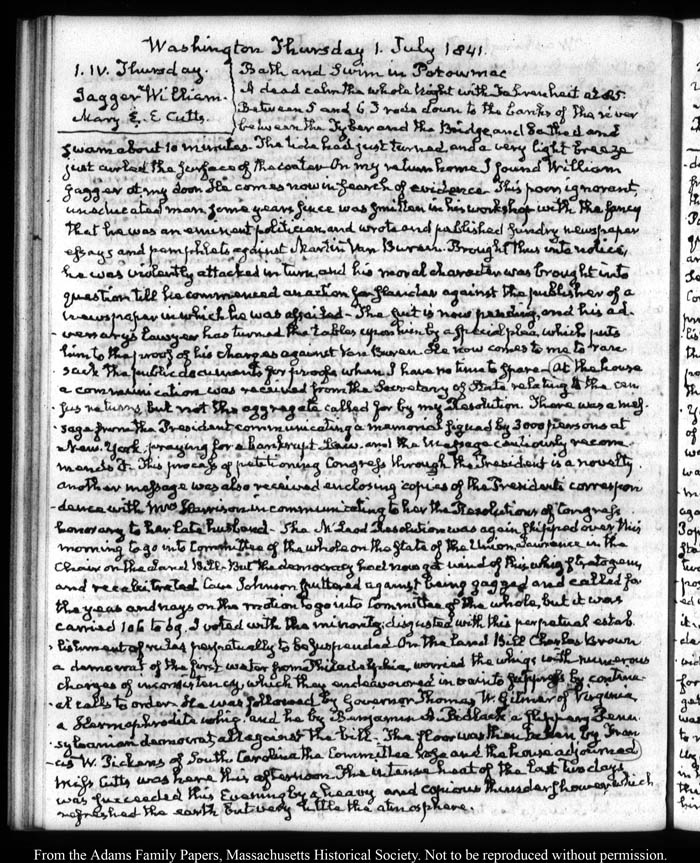 Washington Thursday 1. July 1841.
1. IV. Thursday.
Jagger William.
Mary E. E Cutts.
Bath and Swim in Potowmac
A dead calm the whole Night with Fahrenheit at 85.
Between 5 and 6 I rode down to the banks of the river
between the Tyber and the Bridge, and bathed and
swam about 10 minutes. The tide had just turned, and a very light breeze
just curled the surface of the water. On my return home I found William
Jagger at my door. He comes now in search of evidence. This poor ignorant,
uneducated man, some years since was smitten in his workshop with the fancy
that he was an eminent politician, and wrote and published sundry newspaper
essays and pamphlets against Martin Van Buren. Brought thus into notice,
he was violently attacked in turn, and his moral character was brought into
question till he commenced an action for slander against the publisher of a
newspaper in which he was assailed. The suit is now pending, and his ad-
versary's lawyer has turned the tables upon him by a special plea, which puts
him to the proof of his charges against Van Buren. He now comes to me to ran-
sack the public documents for proofs when I have no time to spare. At the house
a communication was received from the Secretary of State relating to the cen-
sus returns, but not the aggregate called for by my Resolution. There was a mes-
sage from the President communicating a memorial signed by 3000 persons at
New York, praying for a bankrupt Law, and the Message cautiously recom-
mends it. This process of petitioning Congress through the President is a novelty
another message was also received enclosing copies of the President's correspon
dence with Mrs Harrison in communicating to her the Resolutions of Congress
honorary to her late husband. The McLeod Resolution was again slipped over this
morning to go into Committee of the whole on the State of the Union, Lawrence in the
Chair on the Land Bill. But the democracy had now got wind of this whig stratagem,
and recalcitrated. Cave Johnson sputtered against being gagged and called for
the yeas and nays on the motion to go into Committee of the whole, but it was
carried 106 to 69. I voted with the minority; disgusted with this perpetual estab
lishment of rules perpetually to be suspended. On the Land Bill Charles Brown
a democrat of the first water from Philadelphia, worried the whigs with numerous
charges of inconsistency, which they endeavoured in vain to suppress by continu-
al calls to order. He was followed by Governor Thomas W. Gilmer of Virginia
a Hermaphrodite whig, and he by Benjamin A. Bidlack a flippery Penn-
sylvanian democrat, all against the bill. The floor was then taken by Fran
cis W. Pickens of South Carolina the Committee rose and the house adjourned
Miss Cutts was here this afternoon. The intense heat of the last two days
was succeeded this Evening by a heavy and copious thunder shower, which
refreshed the earth but very little the atmosphere.
From the Adams Family Papers, Massachusetts Historical Society. Not to be reproduced without permission.